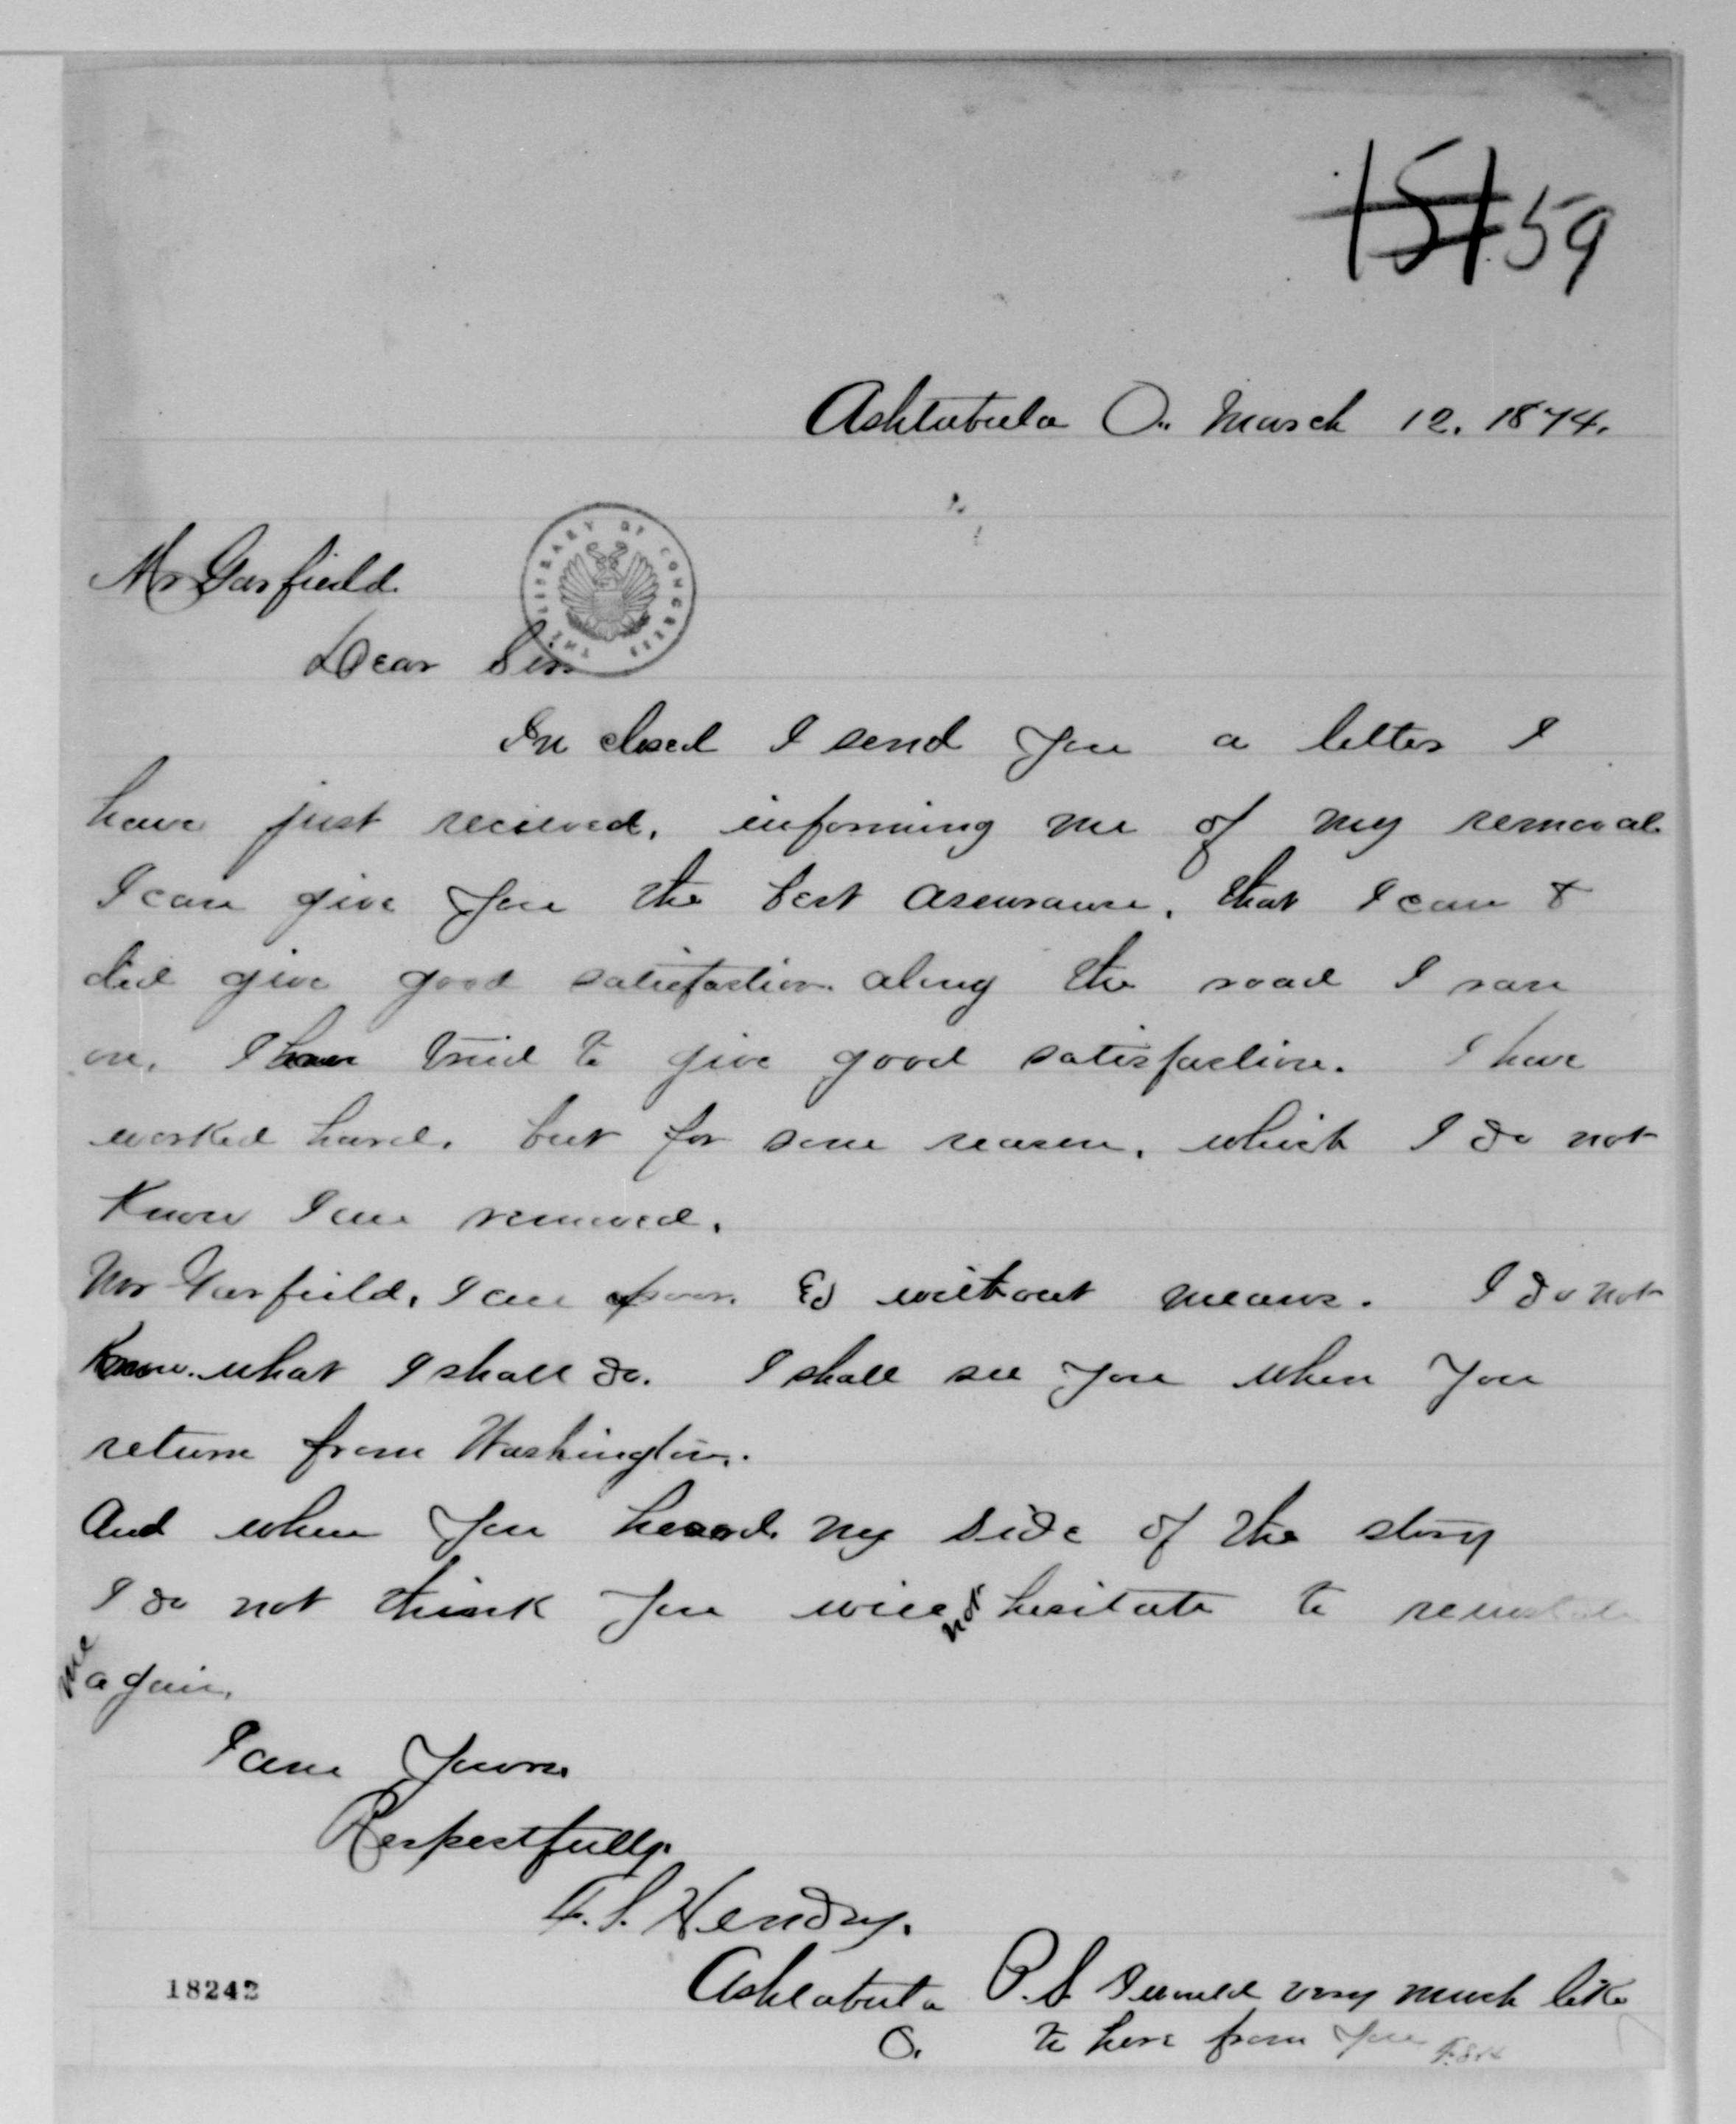 151 59
Ashtabula O. March 12. 1874.
Mr Garfield
THE LIBRARY OF CONGRESS
Dear Sir
In closed I send you a letter I
have just recieved, informing me of my removal
I can give you the best assurance, that I can &
did give good satisfaction along the road I ran
on. I have tried to give good satisfaction. I have
worked hard, but for some reason, which I do not
Know I am removed.
Mr Garfield, I am poor & without means. I do not
Know what I shall do. I shall see you when you
return from Washington.
And when you heard my side of the story
I do not think you will not hesitate to reinstate
me again.
I am Yours
Respectfully.
F. S. Hendry.
Ashtabula
O.
P.S I would very much like
to here from you F.S.H
18242